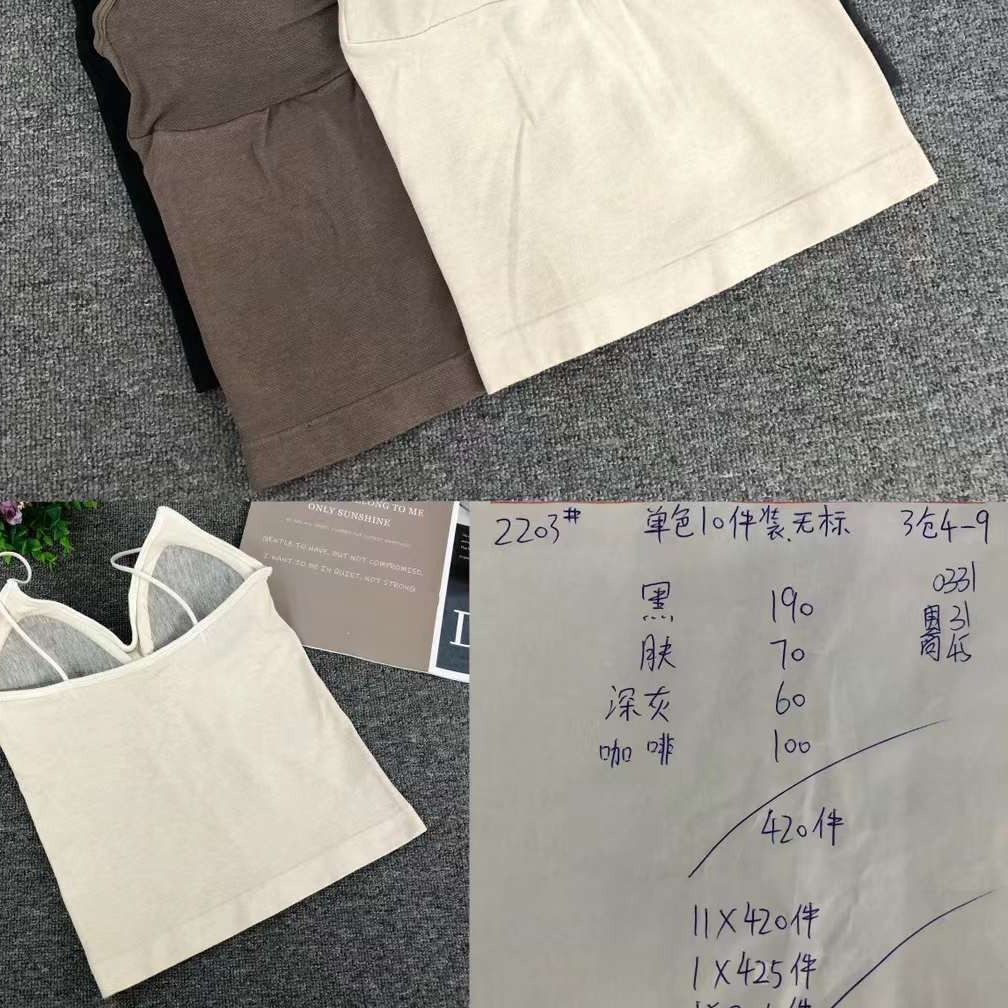 LONG TO ME
ONLY SUNSHINE
GENTLE TO HAVE, BUT NOT COMPROMISE,
I WANT TO BE IN QUIET, NOT STRONG
2203# 单色10件装无标 3仓4-9
0331
黑 190
31
肤 70
45
深灰 60
咖啡 100
420件
11X420件
1X425件